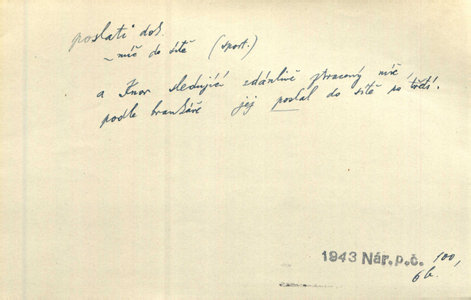 poslati dok.
~ míč do sítě (sport.)
a Knor sledující zdánlivě ztracený míč,
podle brankáře jej poslal do sítě po třetí.
1943 Nár.p.č. 100,
6b.